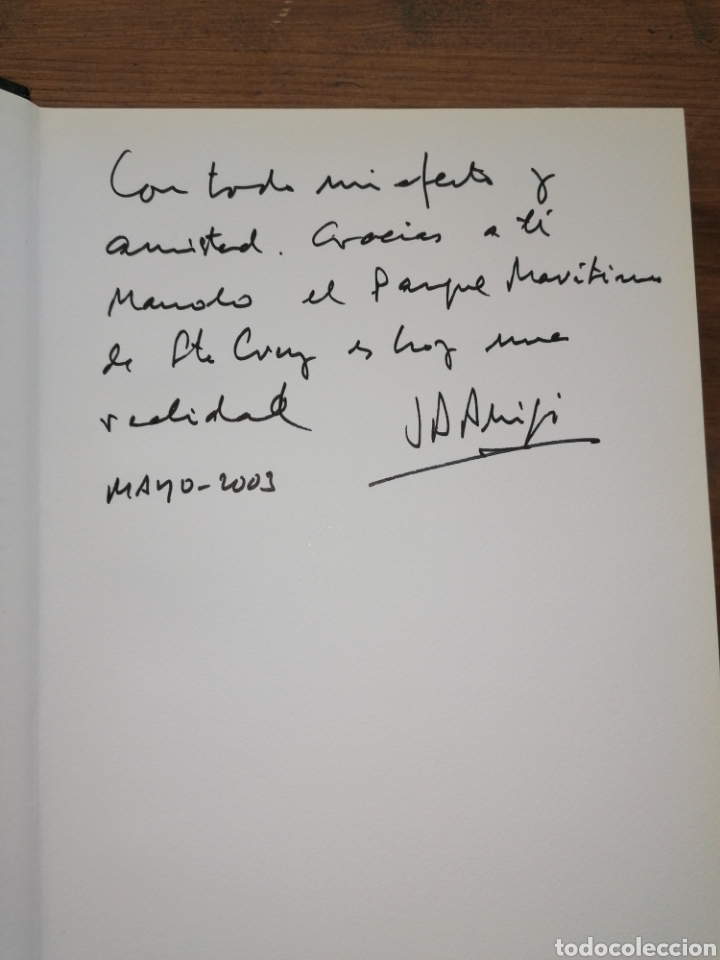 Con todo mi afecto y
amistad. Gracias a ti
Manolo el Parque Maritimo
de Sta Cruz es hoy una
realidad
MAYO-2003
todocoleccion
todocoleccion